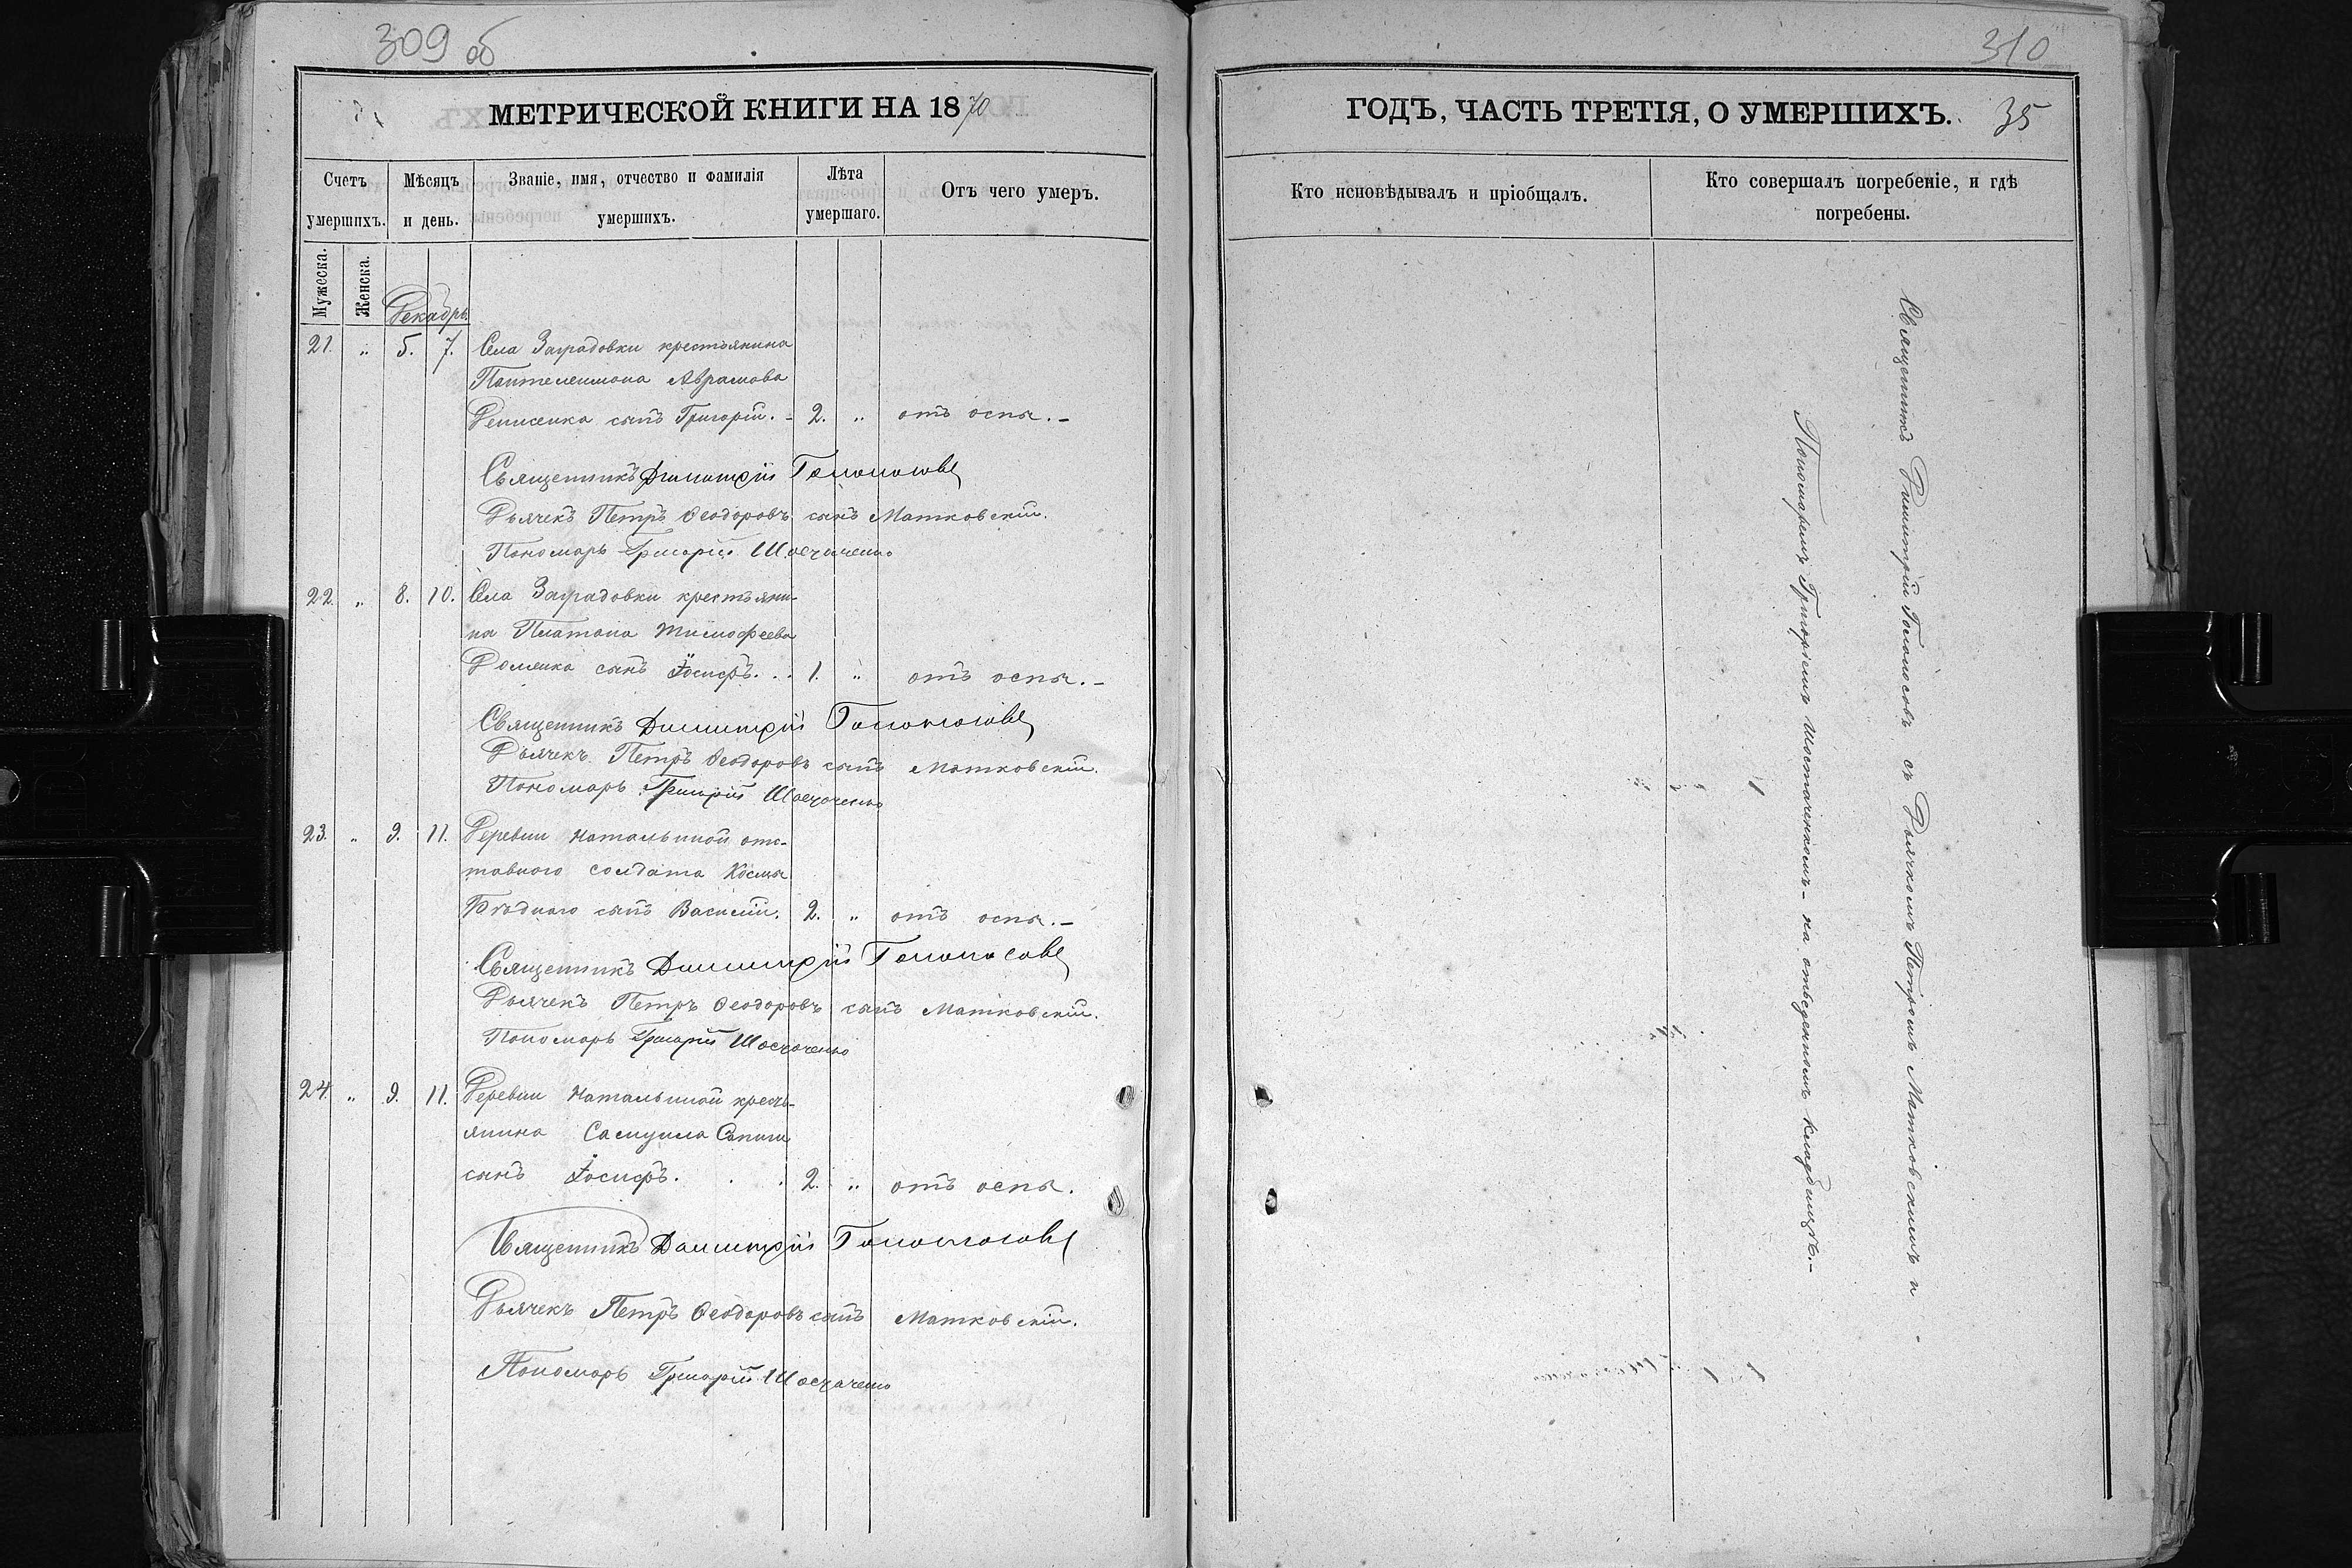 309 об
МЕТРИЧЕСКОЙ КНИГИ НА 1870
Счетъ умершихъ.
Мѣсяцъ и день.
Званіе, имя, отчество и фамилія умершихъ.
Лѣта умершаго.
Отъ чего умеръ.
Мужеска.
Женска.
Декабрь
21. „ 5. 7. Села Заградовки крестьянина
Пантелеимона Аврамова
Денисенка сынъ Григорій. - 2. „ отъ оспы. -
Священникъ Димитрій Голоносовъ
Дьячекъ Петръ Ѳеодоровъ сынъ Матковскій.
Пономарь Григорій Шостаченко
22. „ 8. 10. Села Заградовки крестьяни-
на Платона Тимофеева
сынъ Іосифъ. . . 1. „ отъ оспы. -
Священникъ Димитрій Голоносовъ
Дьячекъ Петръ Ѳеодоровъ сынъ Матковскій.
Пономарь Григорій Шостаченко
23. „ 9. 11. Деревни Натальиной отс-
тавного солдата Космы
Бѣдного сынъ Василій. 2. „ отъ оспы. -
Священникъ Димитрій Голоносовъ
Дьячекъ Петръ Ѳеодоровъ сынъ Матковскій.
Пономарь Григорій Шостаченко
24. „ 9. 11. Деревни Натальиной кресть-
янина Самуила
сынъ Іосифъ. . . 2. „ отъ оспы.
Священникъ Димитрій Голоносовъ
Дьячекъ Петръ Ѳеодоровъ сынъ Матковскій.
Пономарь Григорій Шостаченко
310
ГОДЪ, ЧАСТЬ ТРЕТІЯ, О УМЕРШИХЪ. 35
Кто исповѣдывалъ и пріобщалъ.
Кто совершалъ погребеніе, и гдѣ
погребены.
Священникъ Димитрій Голоносовъ съ Дьячкомъ Петромъ Матковскимъ и
Пономаремъ Григоріемъ Шостаченкомъ - на отведенномъ кладбищѣ. -